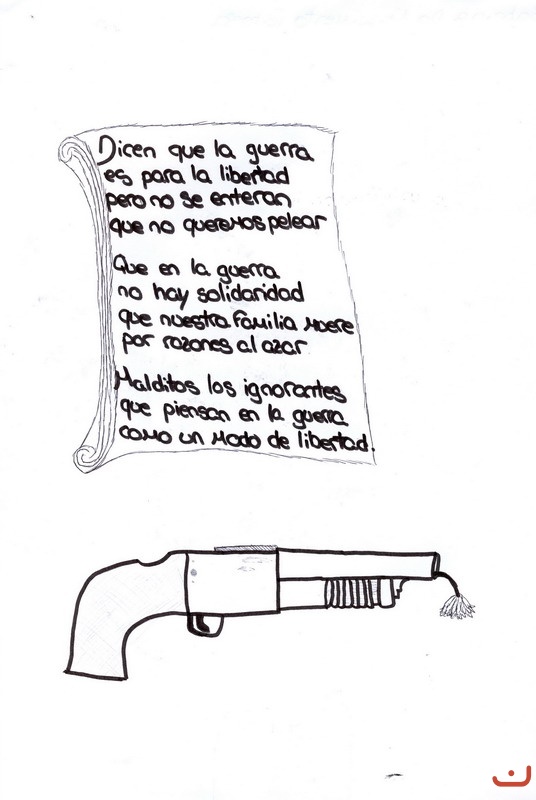 Dicen que la guerra
es para la libertad
pero no se enteran
que no queremos pelear
Que en la guerra
no hay solidaridad
que nuestra familia muere
por razones al azar
Malditos los ignorantes
que piensan en la guerra
como un modo de libertad.